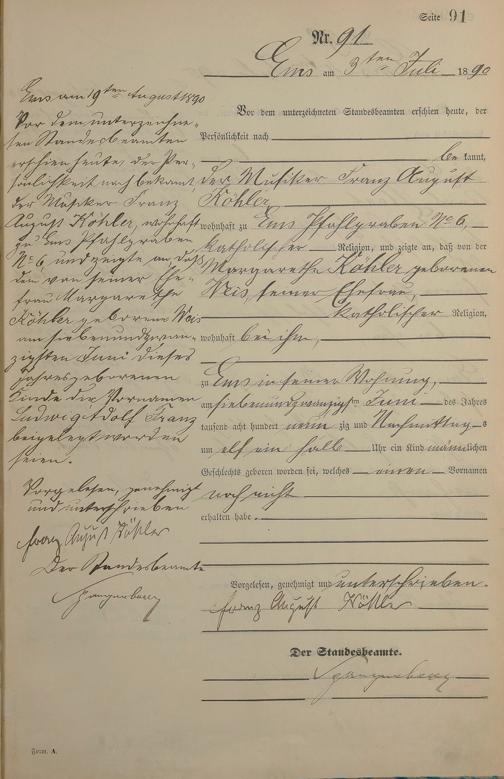 Seite 91
Nr. 91
Ems am 3ten Juli 1890
Vor dem unterzeichneten Standesbeamten erschien heute, der
Persönlichkeit nach
be kannt,
der Musiker Franz August
Köhler,
wohnhaft zu Ems Pfahlgraben No 6,
katholischer Religion, und zeigte an, daß von der
Margarethe Köhler geborenen
Weis, seiner Ehefrau,
katholischer Religion,
wohnhaft bei ihm,
zu Ems in seiner Wohnung,
am siebenundzwanzigsten Juni des Jahres
tausend acht hundert neun zig und Nachmittag s
um elf ein halb Uhr ein Kind männlichen
Geschlechts geboren worden sei, welches einen Vornamen
noch nicht
erhalten habe.
Vorgelesen, genehmigt und unterschrieben.
Franz August Köhler
Der Standesbeamte.
Ems am 19ten August 1890
Vor dem unterzeichne-
ten Standesbeamten
erschien heute, der Per-
sönlichkeit nach bekannt
der Musiker Franz
August Köhler, wohnhaft
zu Ems Pfahlgraben
No 6, und zeigte an, daß
von seiner Ehe-
frau Margarethe
Köhler geborene Weis
am siebenundzwan-
zigsten Juni dieses
Jahres geborenen
Kinde die Vornamen
Ludwig Adolf Franz
beigelegt worden
seien.
Vorgelesen, genehmigt
und unterschrieben
Franz August Köhler
Der Standesbeamte
Form. A.